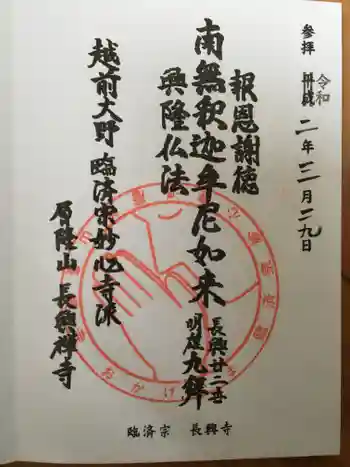 参拝
平成
令和
二年三月二九日
報恩謝徳
南無釈迦牟尼如来
興隆仏法
長興廿二世
明崖九拜
越前大野 臨済宗妙心寺派
原隆山 長興禅寺
臨済宗 長興寺